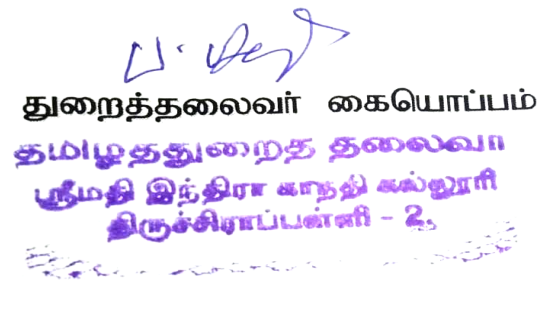 துறைத்தலைவர் கையொப்பம்
தமிழத்துறைத தலைவா
ஸ்ரீமதி இந்திரா காந்தி கல்லூரி
திருச்சிராப்பள்ளி - 2.